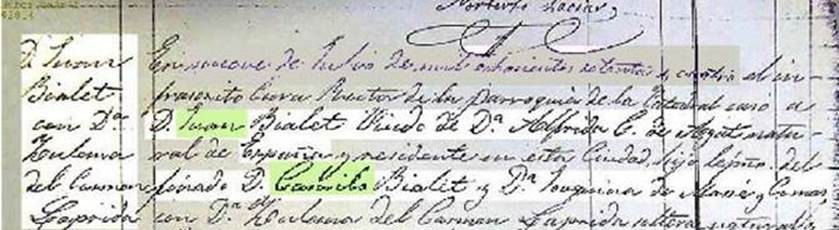 Norberto
D. Juan
Bialet
con Dª
Zulema
del Carmen
Laprida
En nueve de Julio de mil ochocientos setenta y cuatro el in-
frascrito Cura Rector de la parroquia de la Catedral caso a
D. Juan Bialet Viudo de Dª Alfrida C. de natu-
ral de España y residente en esta Ciudad, hijo lejmo. del
finado D. Bialet y Dª Joaquina de Masse y
con Dª Zulema del Carmen Laprida soltera natural